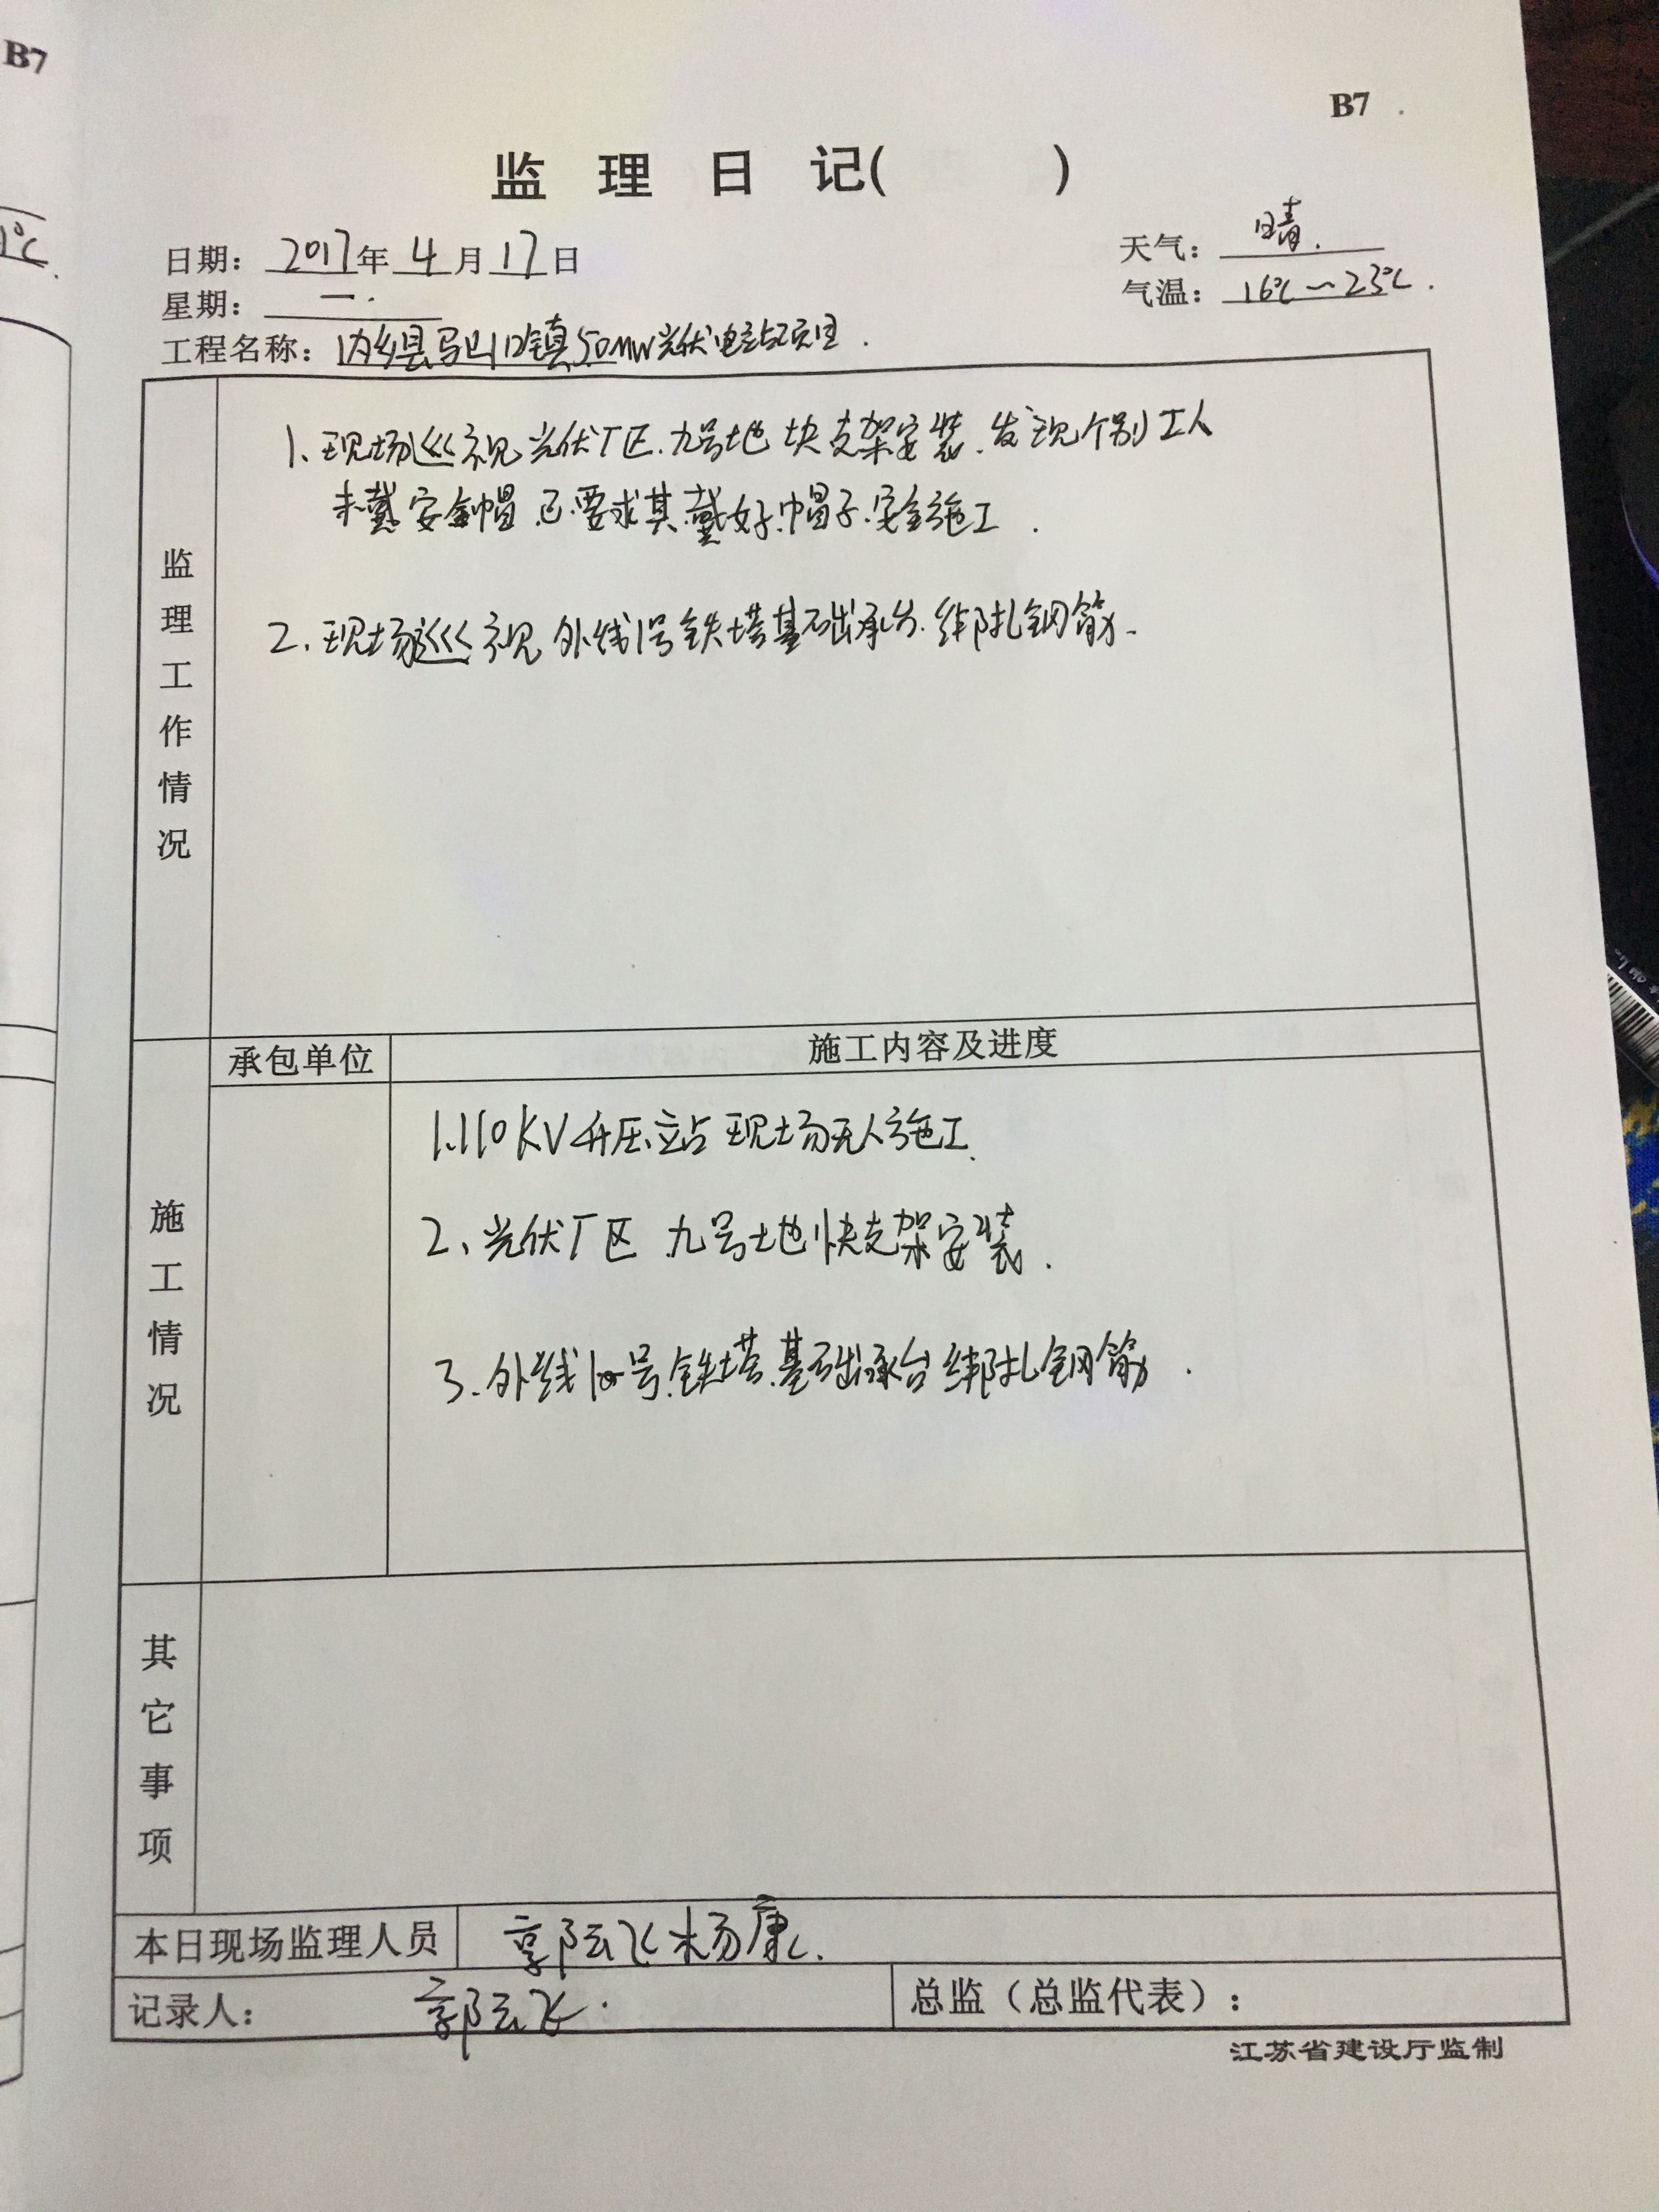 B7
B7
监理日记(    )
1℃.
日期：2017年4月17日
天气：晴.
星期：一.
气温：16℃～23℃.
工程名称：内乡县马山口镇50MW光伏电站项目.
监理工作情况
1、现场巡视光伏厂区.九号地块支架安装.发现个别工人
未戴安全帽.已要求其戴好帽子.安全施工.
2.现场巡视外线1号铁塔基础承台.绑扎钢筋.
承包单位
施工内容及进度
施工情况
1.110KV升压站现场无人施工.
2、光伏厂区九号地快支架安装.
3.外线 号.铁塔.基础承台绑扎钢筋.
其它事项
本日现场监理人员
郭 飞 杨康.
记录人：郭 飞.
总监（总监代表）：
江苏省建设厅监制